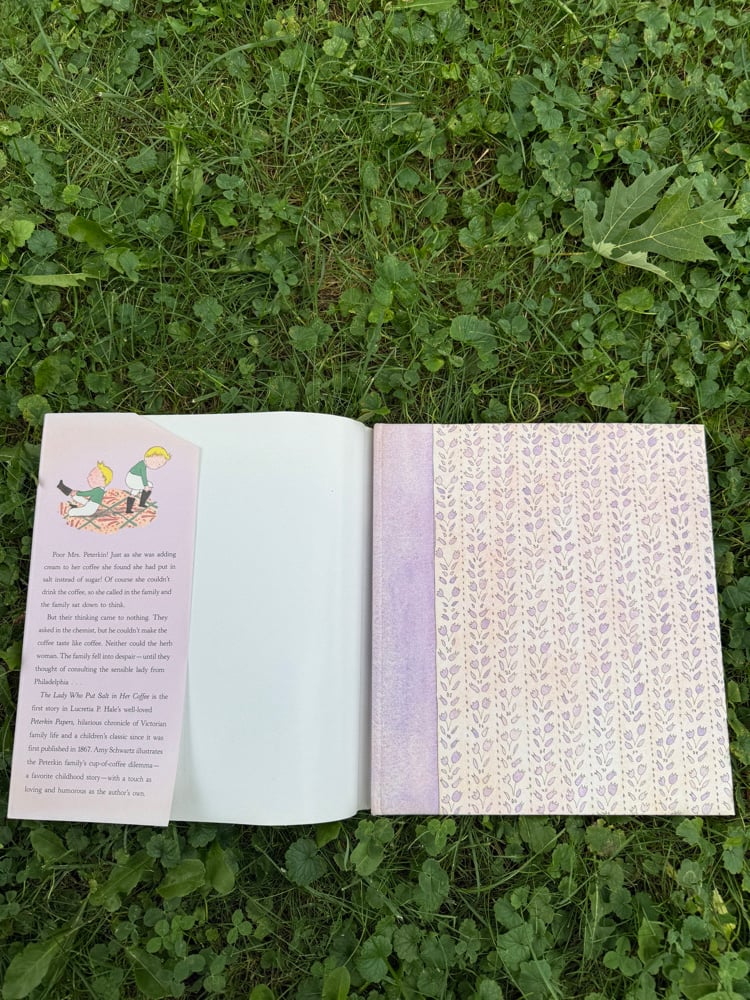 Poor Mrs. Peterkin! Just as she was adding
cream to her coffee she found she had put in
salt instead of sugar! Of course she couldn't
drink the coffee, so she called in the family and
the family sat down to think.
But their thinking came to nothing. They
asked in the chemist, but he couldn't make the
coffee taste like coffee. Neither could the herb
woman. The family fell into despair—until they
thought of consulting the sensible lady from
Philadelphia . . .
The Lady Who Put Salt in Her Coffee is the
first story in Lucretia P. Hale's well-loved
Peterkin Papers, hilarious chronicle of Victorian
family life and a children's classic since it was
first published in 1867. Amy Schwartz illustrates
the Peterkin family's cup-of-coffee dilemma—
a favorite childhood story—with a touch as
loving and humorous as the author's own.